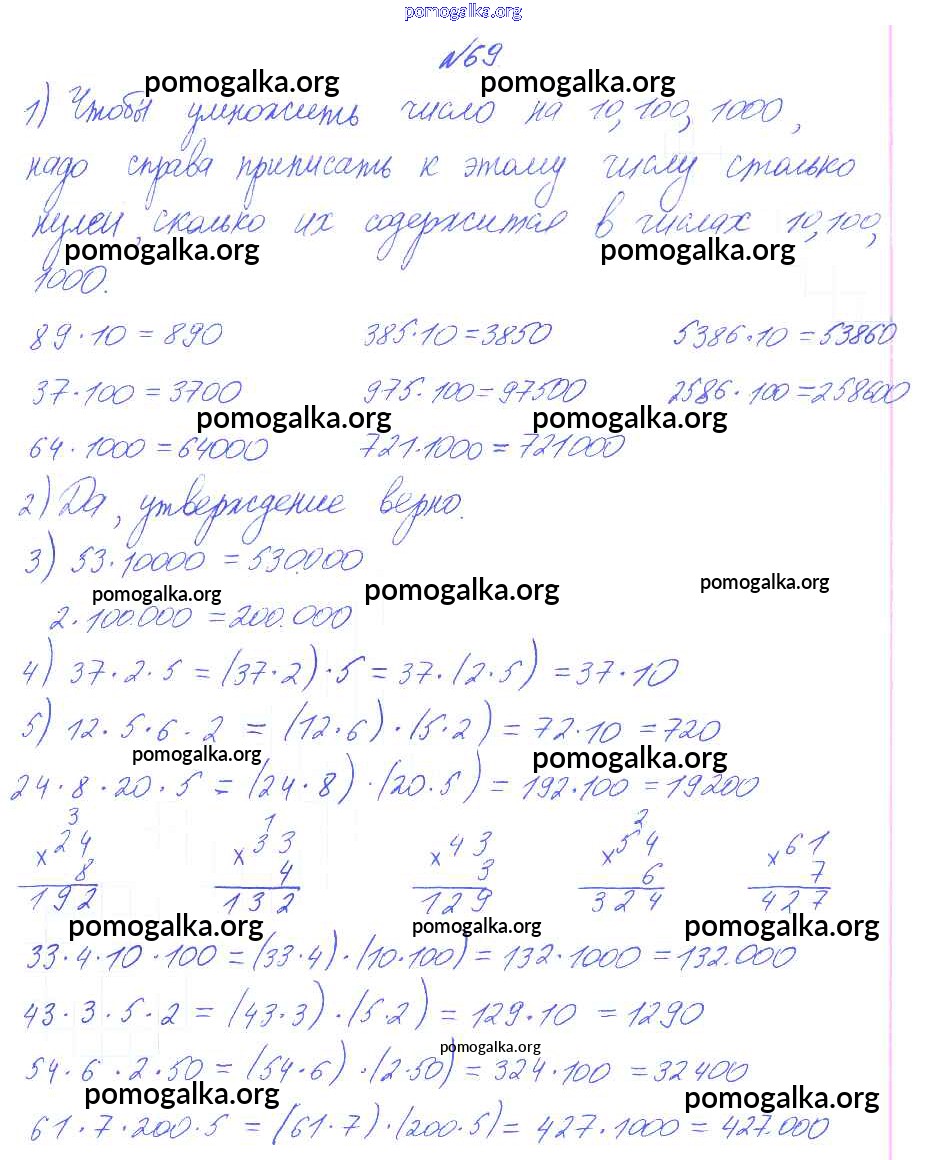 pomogalka.org
№69
pomogalka.org pomogalka.org
1) Чтобы умножить число на 10, 100, 1000,
надо справа приписать к этому числу столько
нулей, сколько их содержится в числах 10, 100,
pomogalka.org pomogalka.org
1000.
89·10=890 385·10=3850 5386·10=53860
37·100=3700 975·100=97500 2586·100=258600
pomogalka.org pomogalka.org
64·1000=64000 721·1000=721000
2) Да, утверждение верно.
3) 53·10000=530.000
pomogalka.org pomogalka.org pomogalka.org
2·100.000=200.000
4) 37·2·5=(37·2)·5=37·(2·5)=37·10
5) 12·5·6·2=(12·6)·(5·2)=72·10=720
pomogalka.org pomogalka.org
24·8·20·5=(24·8)·(20·5)=192·100=19200
3 1 2
×24 ×33 ×43 ×54 ×61
8 4 3 6 7
192 132 129 324 427
pomogalka.org pomogalka.org pomogalka.org
33·4·10·100=(33·4)·(10·100)=132·1000=132.000
43·3·5·2=(43·3)·(5·2)=129·10=1290
pomogalka.org
54·6·2·50=(54·6)·(2·50)=324·100=32400
pomogalka.org pomogalka.org
61·7·200·5=(61·7)·(200·5)=427·1000=427.000